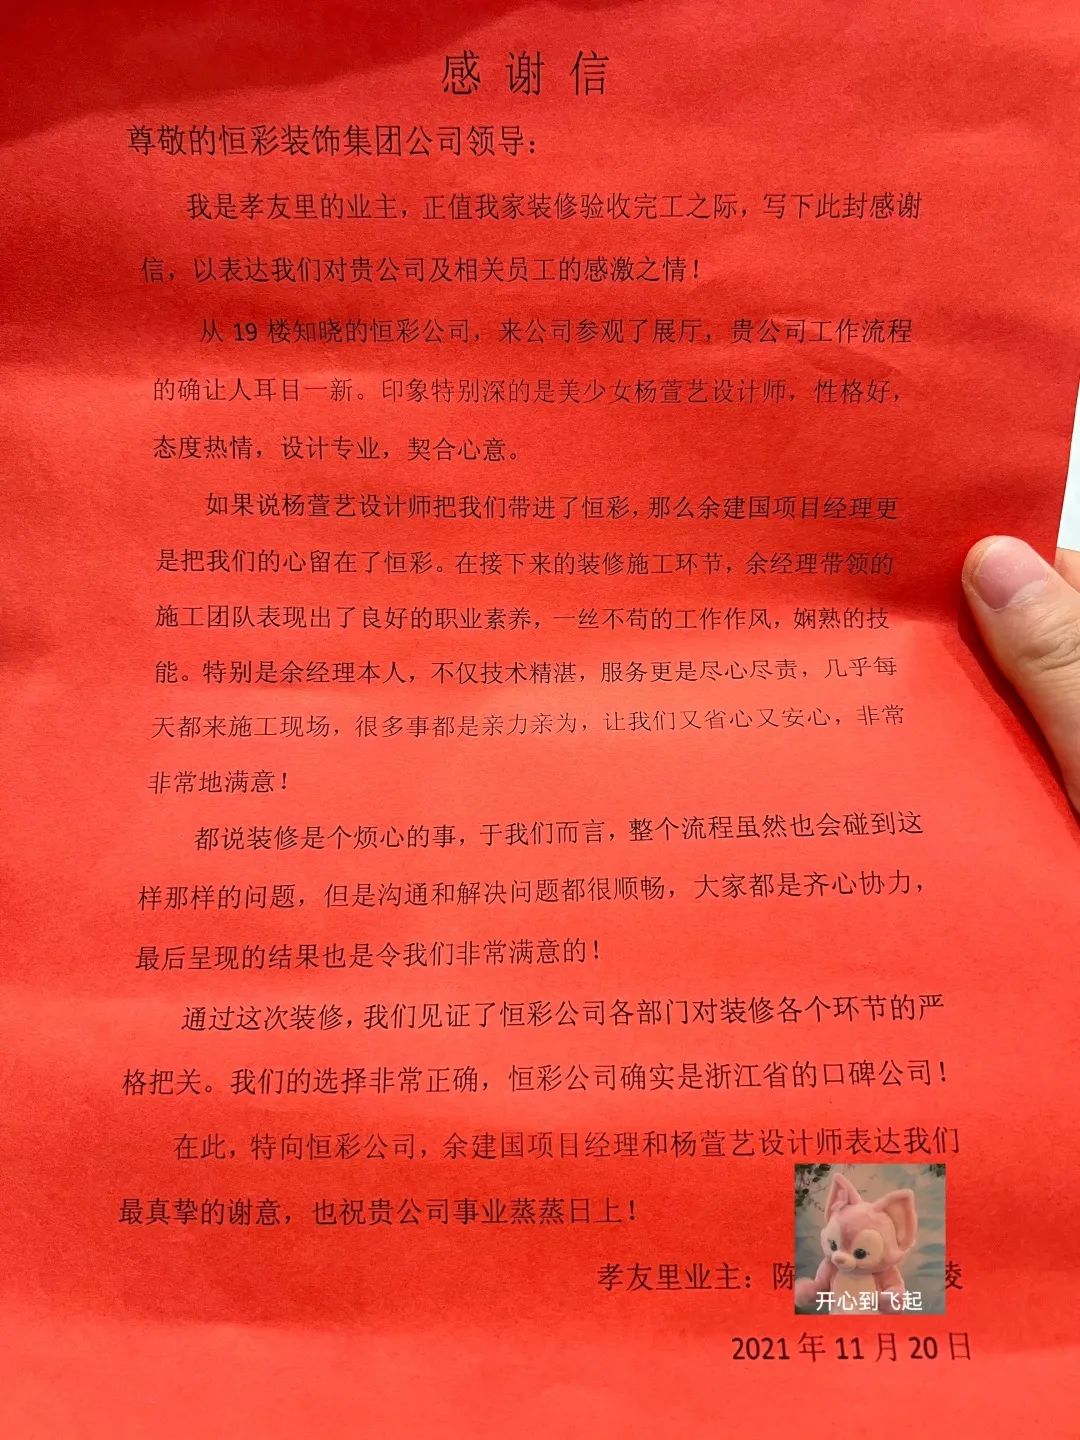 感谢信
尊敬的恒彩装饰集团公司领导：
我是孝友里的业主，正值我家装修验收完工之际，写下此封感谢
信，以表达我们对贵公司及相关员工的感激之情！
从 19 楼知晓的恒彩公司，来公司参观了展厅，贵公司工作流程
的确让人耳目一新。印象特别深的是美少女杨萱艺设计师，性格好，
态度热情，设计专业，契合心意。
如果说杨萱艺设计师把我们带进了恒彩，那么余建国项目经理更
是把我们的心留在了恒彩。在接下来的装修施工环节，余经理带领的
施工团队表现出了良好的职业素养，一丝不苟的工作作风，娴熟的技
能。特别是余经理本人，不仅技术精湛，服务更是尽心尽责，几乎每
天都来施工现场，很多事都是亲力亲为，让我们又省心又安心，非常
非常地满意！
都说装修是个烦心的事，于我们而言，整个流程虽然也会碰到这
样那样的问题，但是沟通和解决问题都很顺畅，大家都是齐心协力，
最后呈现的结果也是令我们非常满意的！
通过这次装修，我们见证了恒彩公司各部门对装修各个环节的严
格把关。我们的选择非常正确，恒彩公司确实是浙江省的口碑公司！
在此，特向恒彩公司，余建国项目经理和杨萱艺设计师表达我们
最真挚的谢意，也祝贵公司事业蒸蒸日上！
孝友里业主：陈 凌
开心到飞起
2021 年 11 月 20 日